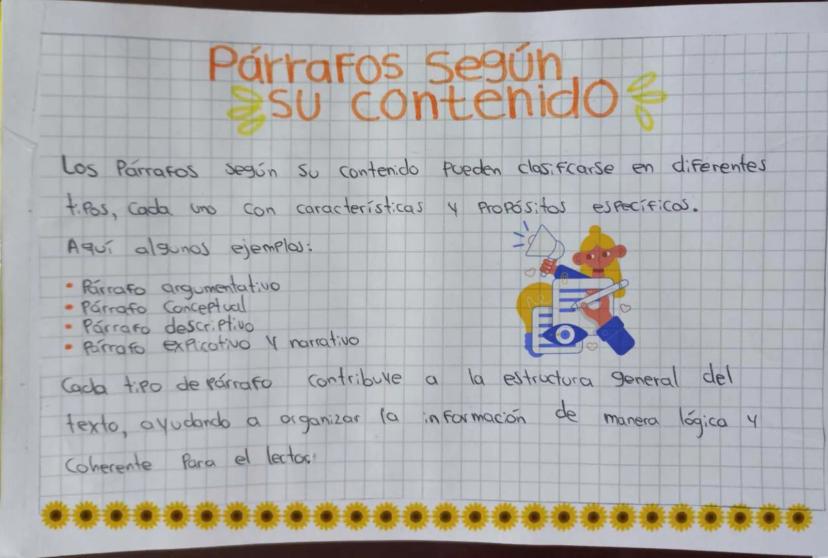 Párrafos Según
su contenido
Los Párrafos según su contenido Pueden clasificarse en diferentes
tipos, cada uno con características y Propósitos específicos.
Aquí algunos ejemplos:
• Párrafo argumentativo
• Párrafo Conceptual
• Párrafo descriptivo
• Párrafo expicativo y narrativo
Cada tipo de párrafo contribuye a la estructura general del
texto, ayudando a organizar la información de manera lógica y
Coherente Para el lector.